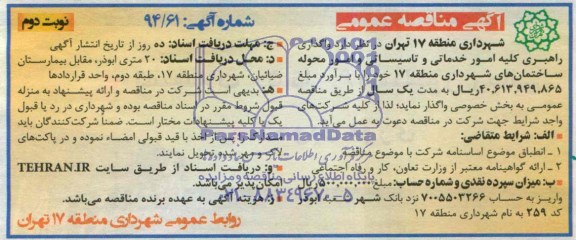 آگهی مناقصه عمومی
شماره آگهی: ۹۴/۶۱
نوبت دوم
شهرداری منطقه ۱۷ تهران در نظر دارد واگذاری
راهبری کلیه امور خدماتی و تاسیساتی و امور محوله
ساختمان‌های شهرداری منطقه ۱۷ خود را با برآورد مبلغ
۴۰.۶۱۳.۹۴۹.۸۶۵ریال به مدت یک سال از طریق مناقصه
عمومی به بخش خصوصی واگذار نماید؛ لذا از کلیه شرکت‌های
واجد شرایط جهت شرکت در مناقصه دعوت به عمل می‌آید.
الف: شرایط متقاضی:
۱ـ انطباق موضوع اساسنامه شرکت با موضوع مناقصه
۲ـ ارائه گواهینامه معتبر از وزارت تعاون، کار و رفاه اجتماعی
ب: میزان سپرده نقدی و شماره حساب: مبلغ ریال
واریز به حساب ۷۰۰۵۵۰۳۲۶۶ نزد بانک شهر شعبه ابوذر
کد ۲۵۹ به نام شهرداری منطقه ۱۷
ج: مهلت دریافت اسناد: ده روز از تاریخ انتشار آگهی
د: محل دریافت اسناد: ۲۰ متری ابوذر، مقابل بیمارستان
ضیائیان، شهرداری منطقه ۱۷، طبقه دوم، واحد قراردادها
هـ: بدیهی است شرکت در مناقصه و ارائه پیشنهاد به منزله
قبول شروط مقرر در اسناد مناقصه بوده و شهرداری در رد یا قبول
یک یا کلیه پیشنهادات مختار است. ضمنا شرکت‌کنندگان باید
مدارک را پس از اخذ با قید قبولی امضاء نموده و در پاکت‌های
لاک و مهر شده تحویل نمایند.
و: دریافت اسناد از طریق سایت TEHRAN.IR
امکان‌پذیر می‌باشد.
ز: هزینه آگهی به عهده برنده مناقصه می‌باشد.
روابط عمومی شهرداری منطقه ۱۷ تهران
ParsNamadData
پایگاه اطلاع رسانی مناقصه و مزایده